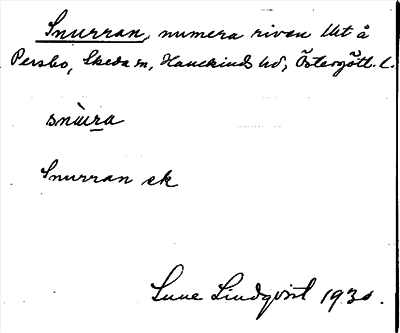 Snurran, numera riven lht å
Persbo, Skeda sn, Hanekinds hd, Östergötl. l.
snùra
Snurran ek
Sune Lindqvist 1930.